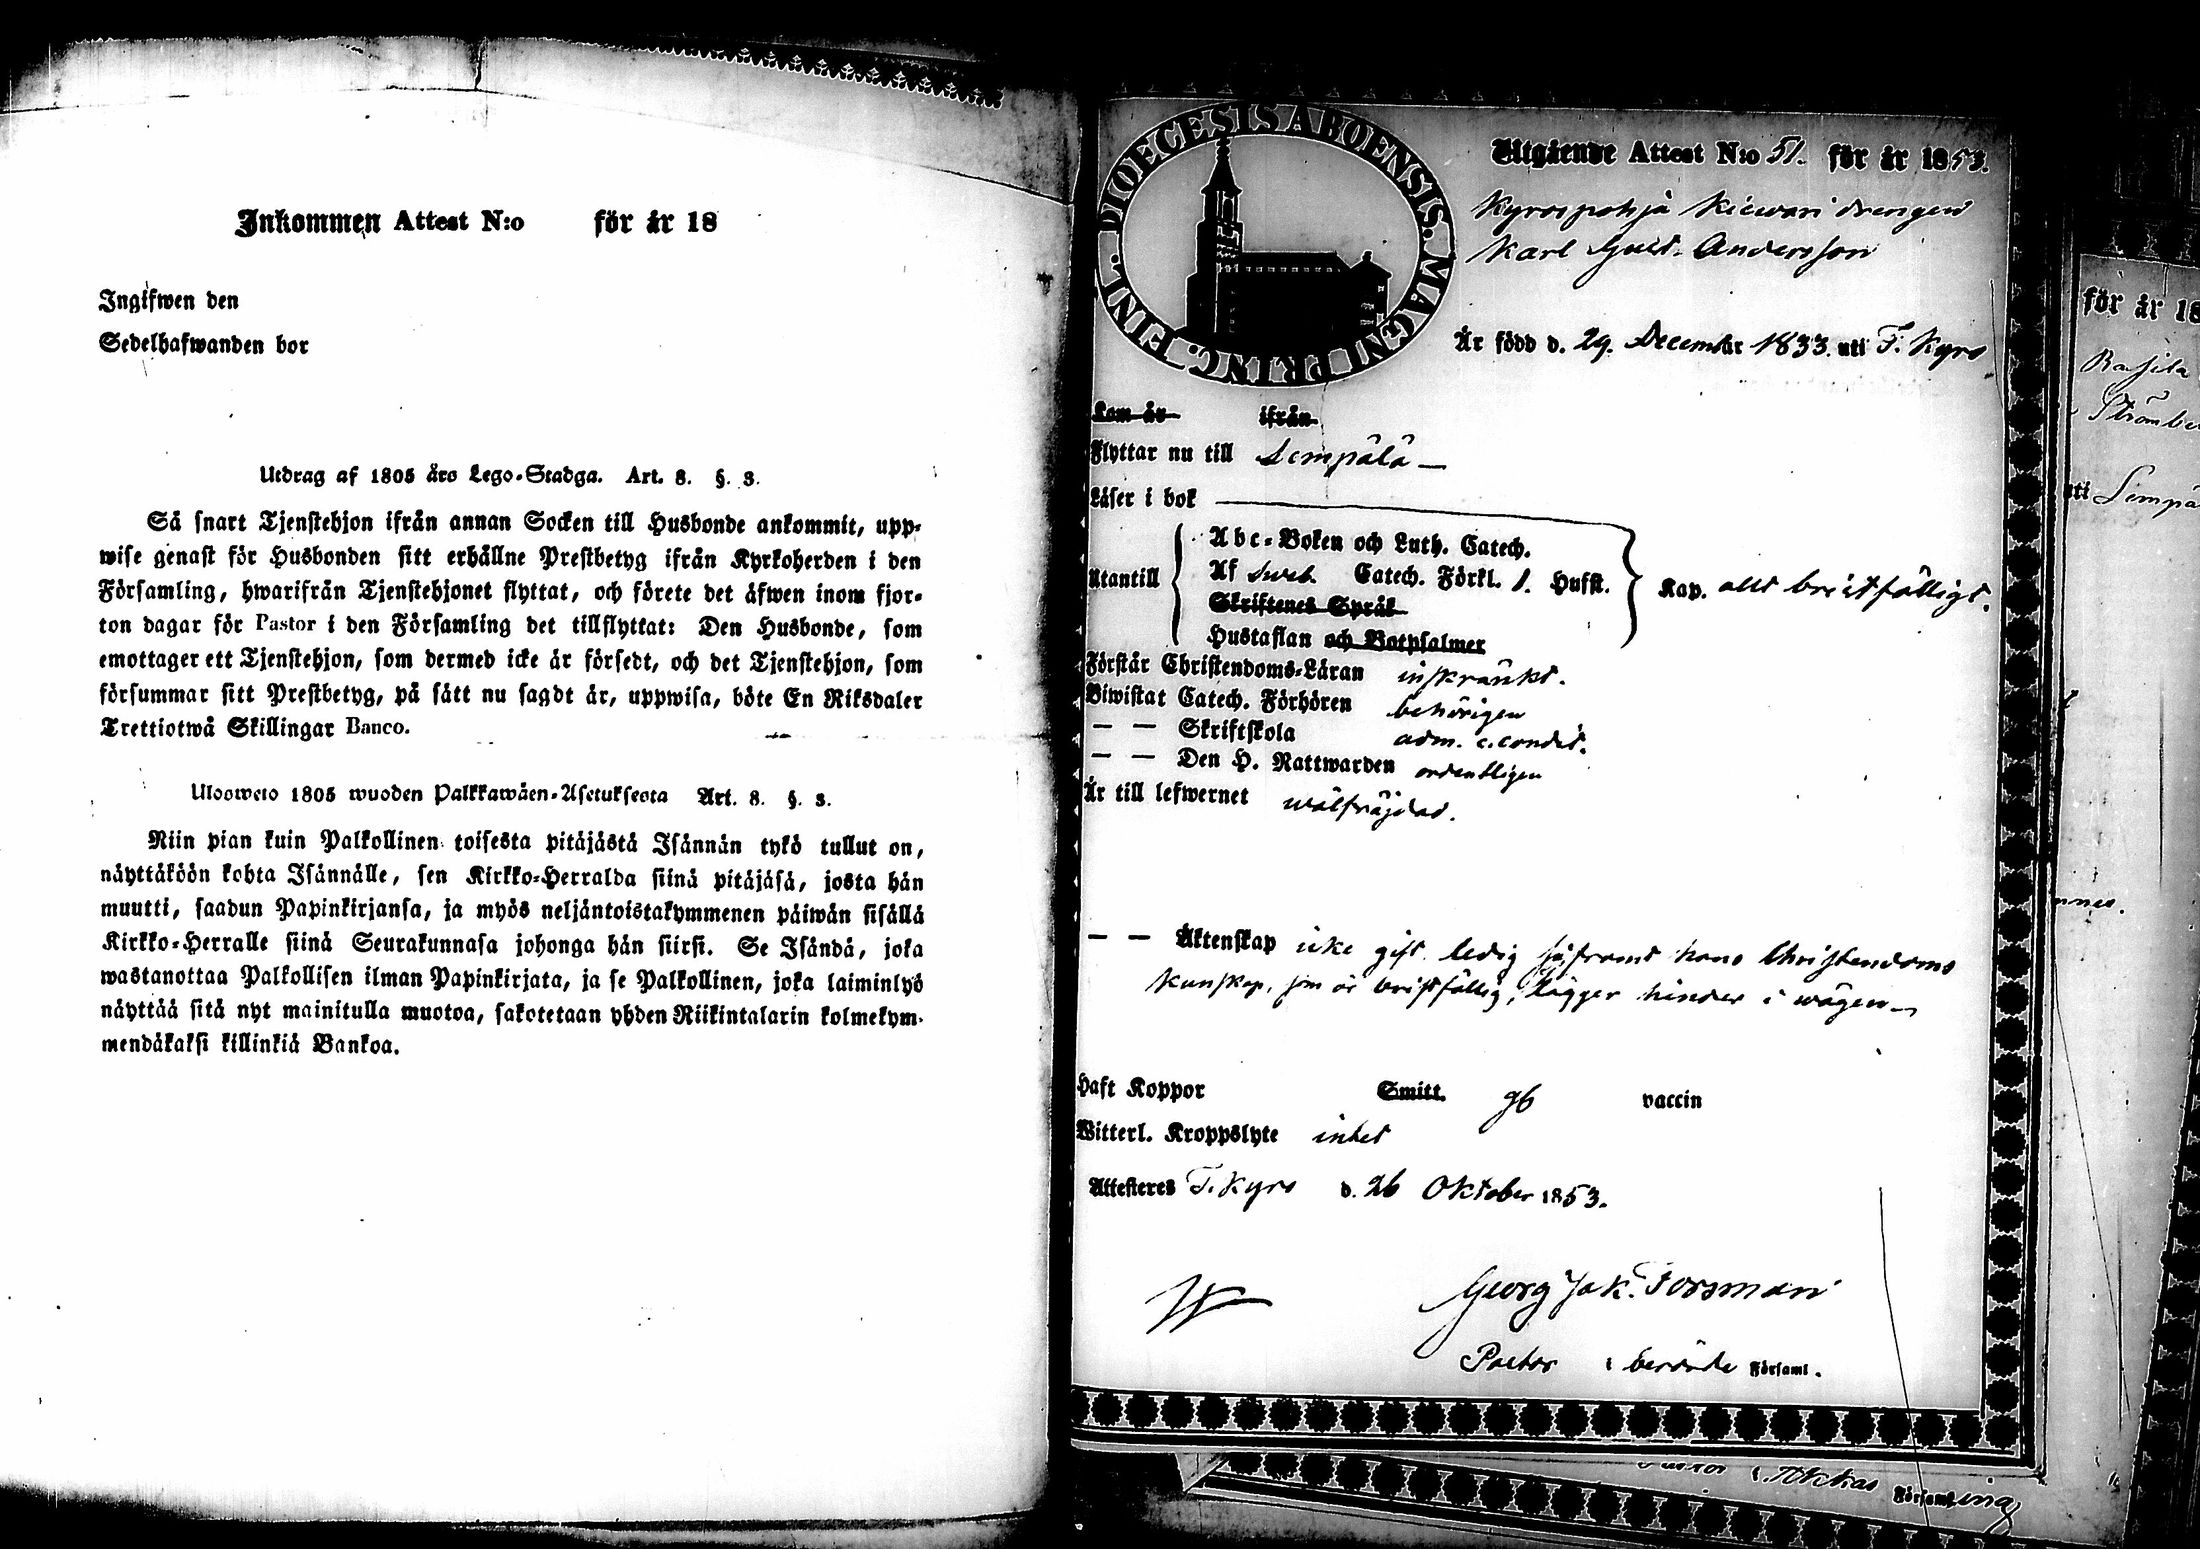 Inkommen Attest N:o för år 18
Ingifwen den
Sedelhafwanden bor
Utdrag af 1805 års Lego-Stadga. Art. 8. §. 3.
Så snart Tjenstehjon ifrån annan Socken till Husbonde ankommit, upp-
wise genast för Husbonden sitt erhållne Prestbetyg ifrån Kyrkoherden i den
Församling, hwarifrån Tjenstehjonet flyttat, och förete det äfwen inom fjor-
ton dagar för Pastor i den Församling det tillflyttat: Den Husbonde, som
emottager ett Tjenstehjon, som dermed icke är försedt, och det Tjenstehjon, som
försummar sitt Prestbetyg, på sätt nu sagdt är, uppwisa, böte En Riksdaler
Trettiotwå Skillingar Banco.
Ulosweto 1805 wuoden Palkkawäen-Asetuksesta Art. 8. §. 3.
Niin pian kuin Palkollinen toisesta pitäjästä Isännän tykö tullut on,
näyttäköön kohta Isännälle, sen Kirkko-Herralda siinä pitäjäsä, josta hän
muutti, saadun Papinkirjansa, ja myös neljäntoistakymmenen päiwän sisällä
Kirkko-Herralle siinä Seurakunnasa johonga hän siirsi. Se Isändä, joka
wastanottaa Palkollisen ilman Papinkirjata, ja se Palkollinen, joka laiminlyö
näyttää sitä nyt mainitulla muotoa, sakotetaan yhden Riikintalarin kolmekym-
mendäkaksi killinkiä Bankoa.
DIOECESIS ABOENSIS. MAGNI PRINC. FINL.
Utgående Attest N:o 51. för år 1853.
Kyrospohja drengen
Karl Gust. Andersson
Är född d. 29. December 1833. uti T. Kyro
Kom år ifrån
Flyttar nu till Lempälä
Läser i bok
Utantill
Abc-Boken och Luth. Catech.
Af Sveb. Catech. Förkl. 1. Hufst.
Skriftenes Språk
Hustaflan och Botpsalmer
Kap. allt bristfälligt.
Förstår Christendoms-Läran inskränkt.
Biwistat Catech. Förhören behörigen
— — Skriftskola adm. c. condit.
— — Den H. Nattwarden ordentligen
Är till lefwernet wälfräjdad.
— — Äktenskap icke gift. ledig såframt hans Christendoms
kunskap, som är bristfällig, lägger hinder i wägen
Haft Koppor Smitt. vaccin
Witterl. Kroppslyte intet
Attesteres T. Kyro d. 26 Oktober 1853.
Georg Jak. Forsman
Pastor i berörde Församl.
för år 18
Församling